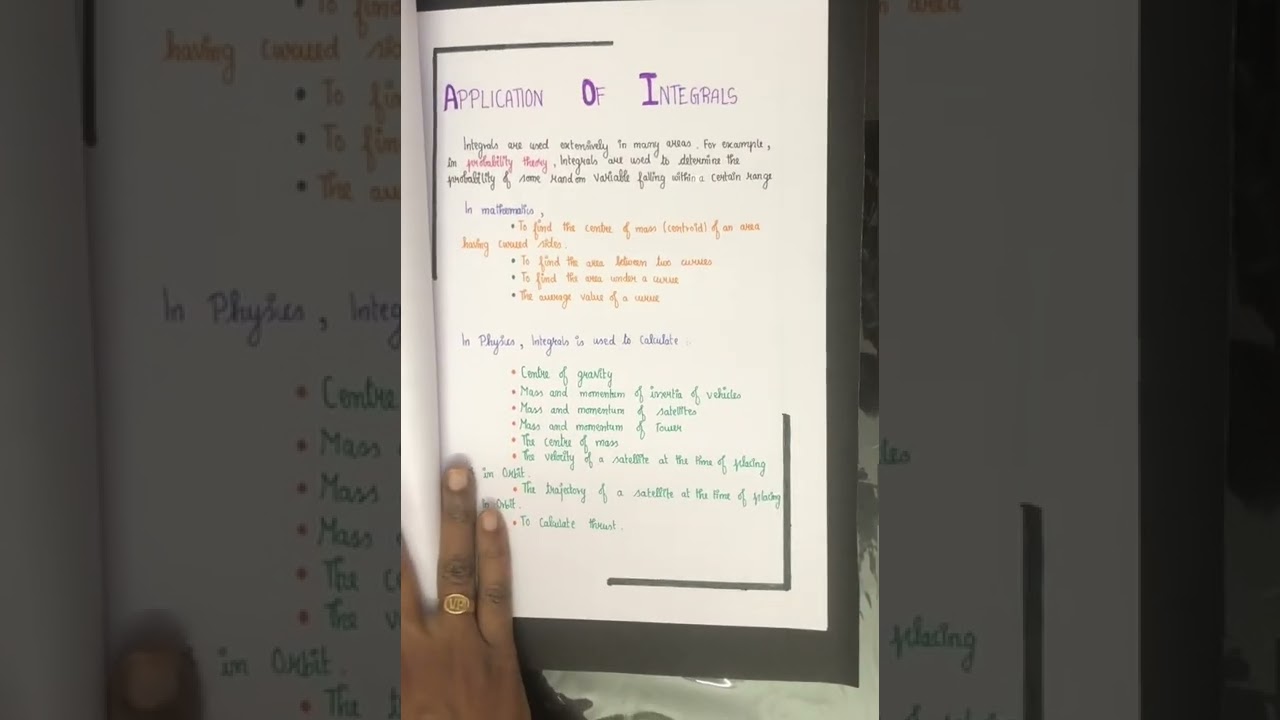 APPLICATION OF INTEGRALS
Integrals are used extensively in many areas. For example,
in probability theory, Integrals are used to determine the
probability of some random variable falling within a certain range
In mathematics,
• To find the centre of mass (centroid) of an area
having curved sides.
• To find the area between two curves
• To find the area under a curve
• The average value of a curve
In Physics, Integrals is used to Calculate :-
• Centre of gravity
• Mass and momentum of inertia of vehicles
• Mass and momentum of satellites
• Mass and momentum of Tower
• The centre of mass
• The velocity of a satellite at the time of placing
in Orbit.
• The trajectory of a satellite at the time of placing
in Orbit.
• To Calculate thrust.
VP